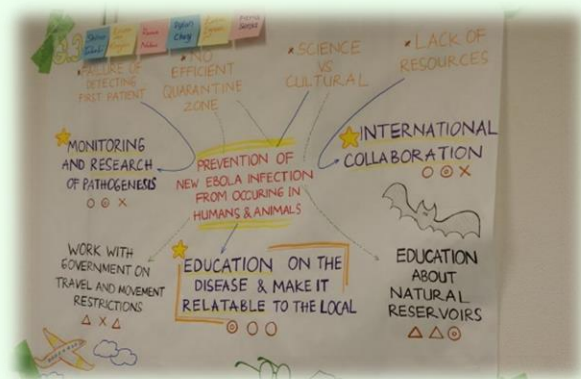 3.3
* FAILURE OF
DETECTING
FIRST PATIENT
* NO
EFFICIENT
QUARANTINE
ZONE
* SCIENCE
VS
CULTURAL
* LACK OF
RESOURCES
MONITORING
AND RESEARCH
OF PATHOGENESIS
PREVENTION OF
NEW EBOLA INFECTION
FROM OCCURING IN
HUMANS & ANIMALS
INTERNATIONAL
COLLABORATION
WORK WITH
GOVERNMENT ON
TRAVEL AND MOVEMENT
RESTRICTIONS
EDUCATION ON THE
DISEASE & MAKE IT
RELATABLE TO THE LOCAL
EDUCATION
ABOUT
NATURAL
RESERVOIRS